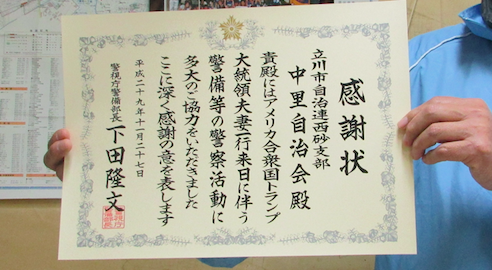 感謝状
立川市自治連西砂支部
中里自治会殿
貴殿にはアメリカ合衆国トランプ
大統領夫妻一行来日に伴う
警備等の警察活動に
多大のご協力をいただきました
ここに深く感謝の意を表します
平成二十九年十一月二十七日
警視庁警備部長 下田隆文